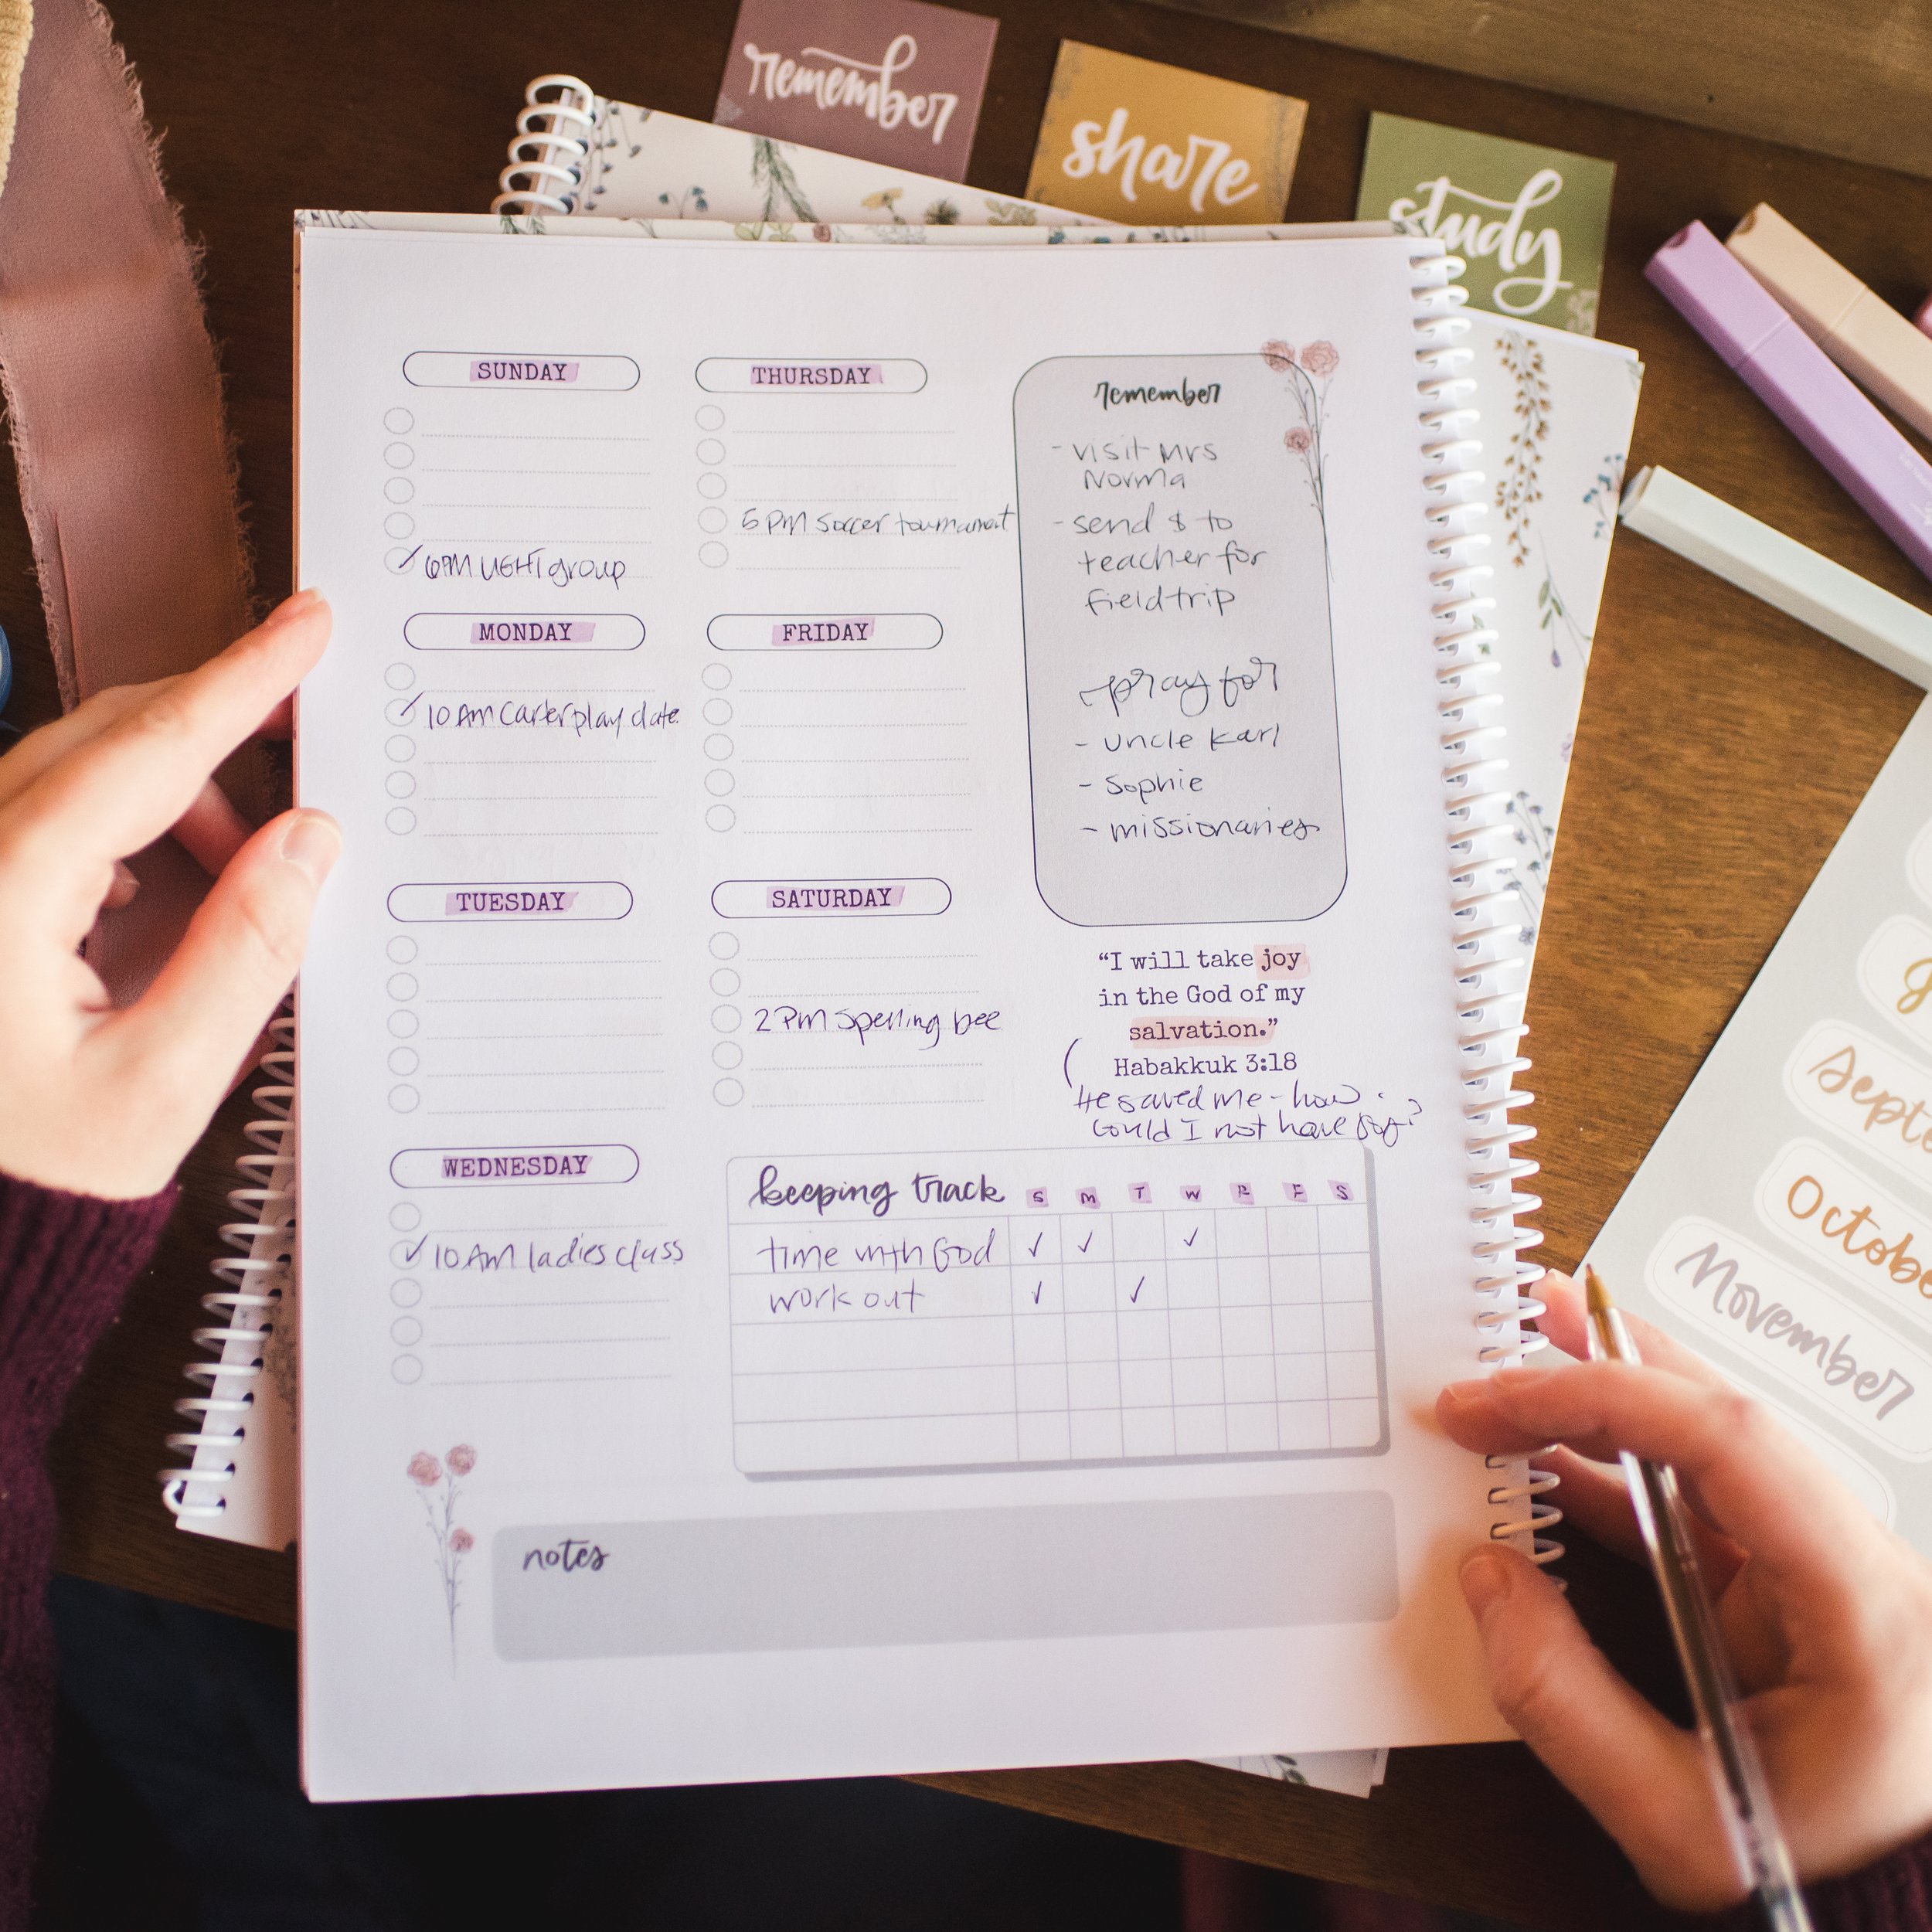 remember
share
study
SUNDAY
6PM LIGHT group
MONDAY
10 AM Carter play date
TUESDAY
WEDNESDAY
10 AM ladies class
THURSDAY
5 PM Soccer tournament
FRIDAY
SATURDAY
2 PM Spelling bee
remember
- visit Mrs
Norma
- send $ to
teacher for
fieldtrip
pray for
- Uncle Karl
- Sophie
- missionaries
“I will take joy
in the God of my
salvation.”
Habakkuk 3:18
He saved me - how
could I not have joy?
keeping track S M T W R F S
time with God ✓ ✓ ✓
work out ✓ ✓
notes
October
November